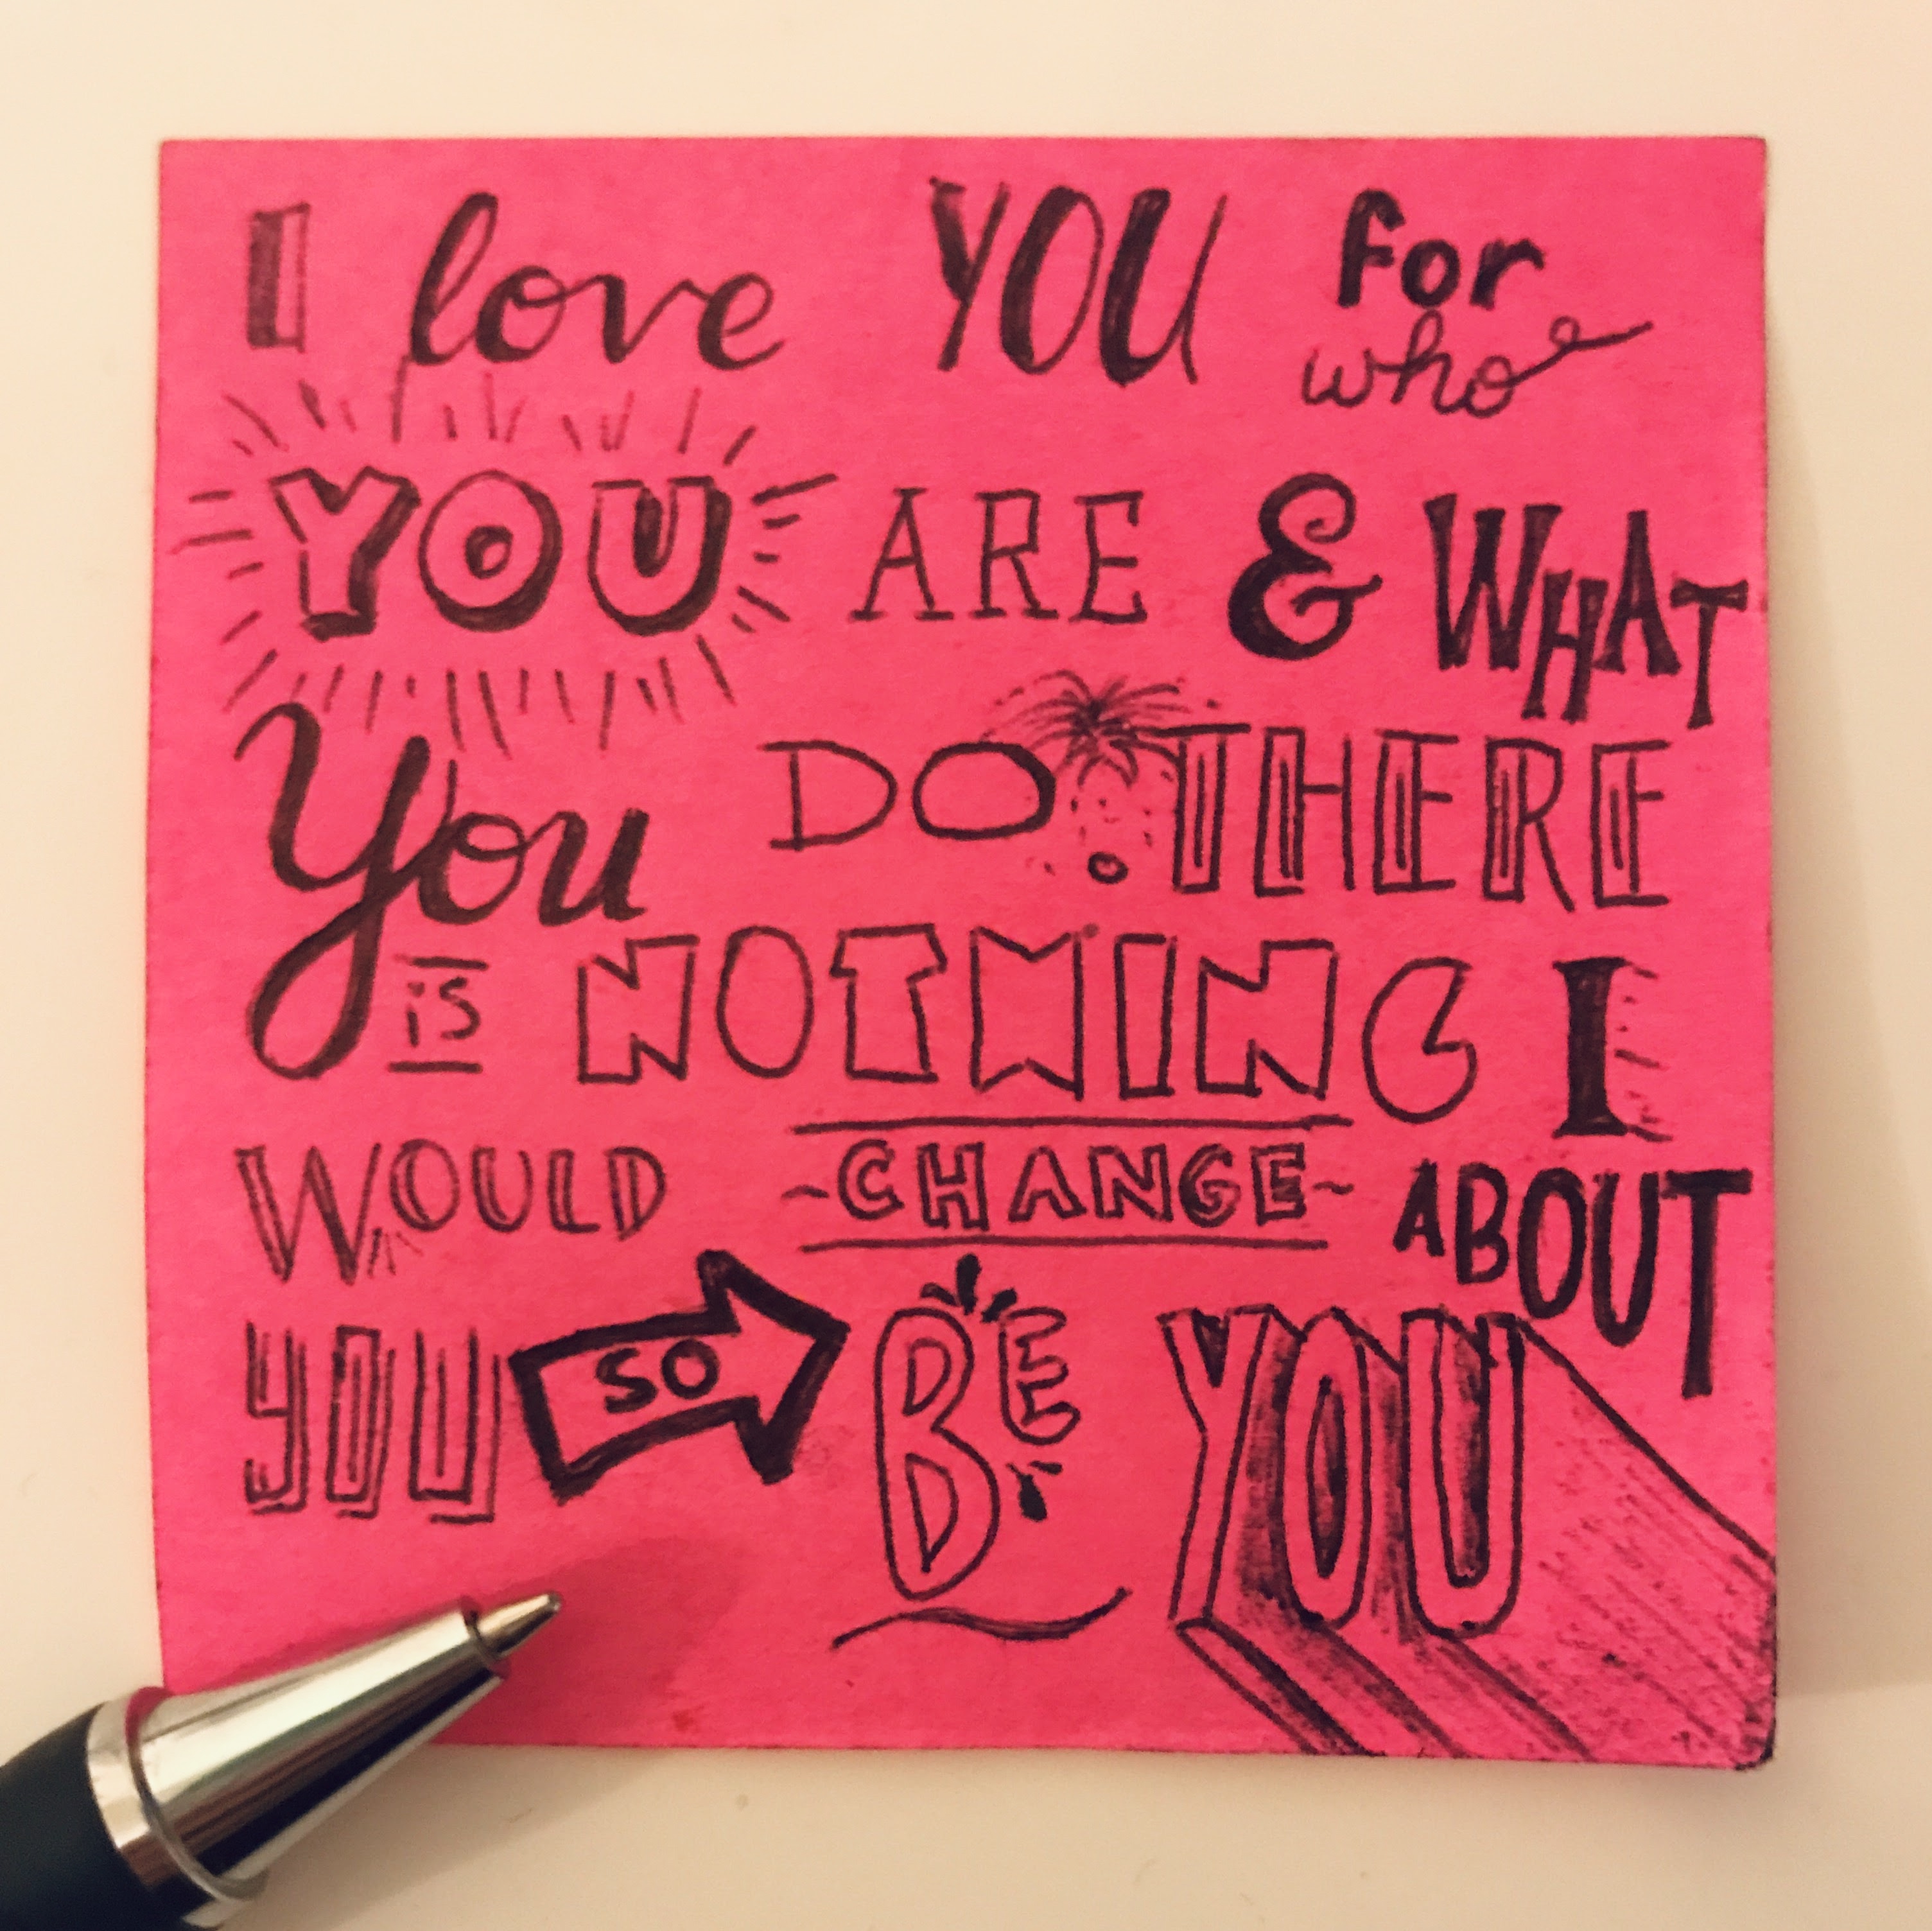 I love YOU for who
YOU ARE & WHAT
You DO. THERE
is NOTHING I
WOULD ~CHANGE~ ABOUT
YOU SO BE YOU